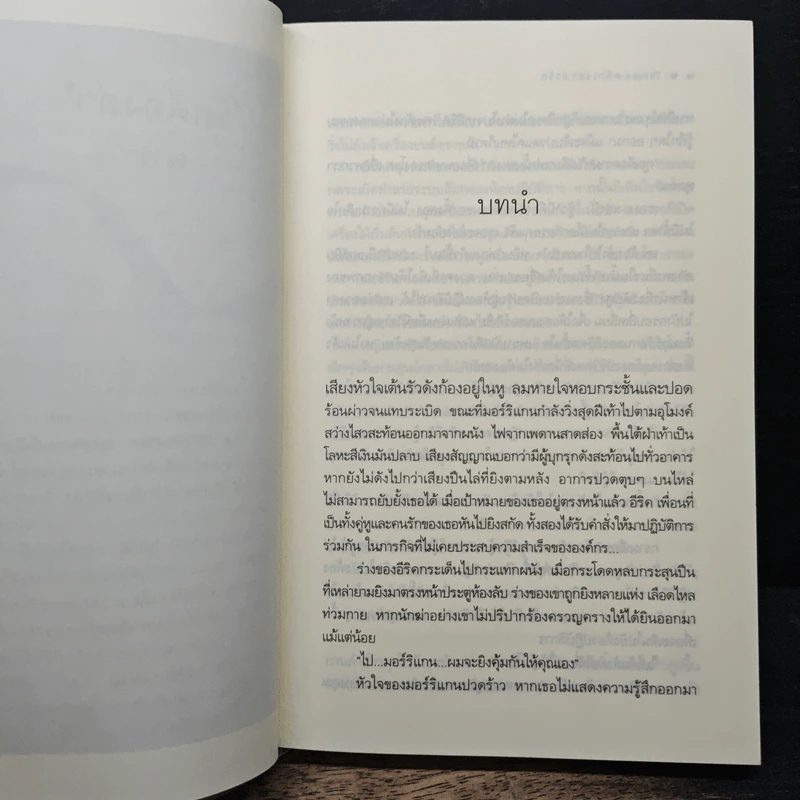 บทนำ
เสียงหัวใจเต้นรัวดังก้องอยู่ในหู ลมหายใจหอบกระชั้นและปอด
ร้อนผ่าวจนแทบระเบิด ขณะที่มอร์ริแกนกำลังวิ่งสุดฝีเท้าไปตามอุโมงค์
สว่างไสวสะท้อนออกมาจากผนัง ไฟจากเพดานสาดส่อง พื้นใต้ฝ่าเท้าเป็น
โลหะสีเงินมันปลาบ เสียงสัญญาณบอกว่ามีผู้บุกรุกดังสะท้อนไปทั่วอาคาร
หากยังไม่ดังไปกว่าเสียงปืนไล่ที่ยิงตามหลัง อาการปวดตุบๆ บนไหล่
ไม่สามารถยับยั้งเธอได้ เมื่อเป้าหมายของเธออยู่ตรงหน้าแล้ว อีริค เพื่อนที่
เป็นทั้งคู่หูและคนรักของเธอหันไปยิงสกัด ทั้งสองได้รับคำสั่งให้มาปฏิบัติการ
ร่วมกัน ในภารกิจที่ไม่เคยประสบความสำเร็จขององค์กร...
ร่างของอีริคกระเด็นไปกระแทกผนัง เมื่อกระโดดหลบกระสุนปืน
ที่เหล่ายามยิงมาตรงหน้าประตูห้องลับ ร่างของเขาถูกยิงหลายแห่ง เลือดไหล
ท่วมกาย หากนักฆ่าอย่างเขาไม่ปริปากร้องครวญครางให้ได้ยินออกมา
แม้แต่น้อย
"ไป...มอร์ริแกน...ผมจะยิงคุ้มกันให้คุณเอง"
หัวใจของมอร์ริแกนปวดร้าว หากเธอไม่แสดงความรู้สึกออกมา